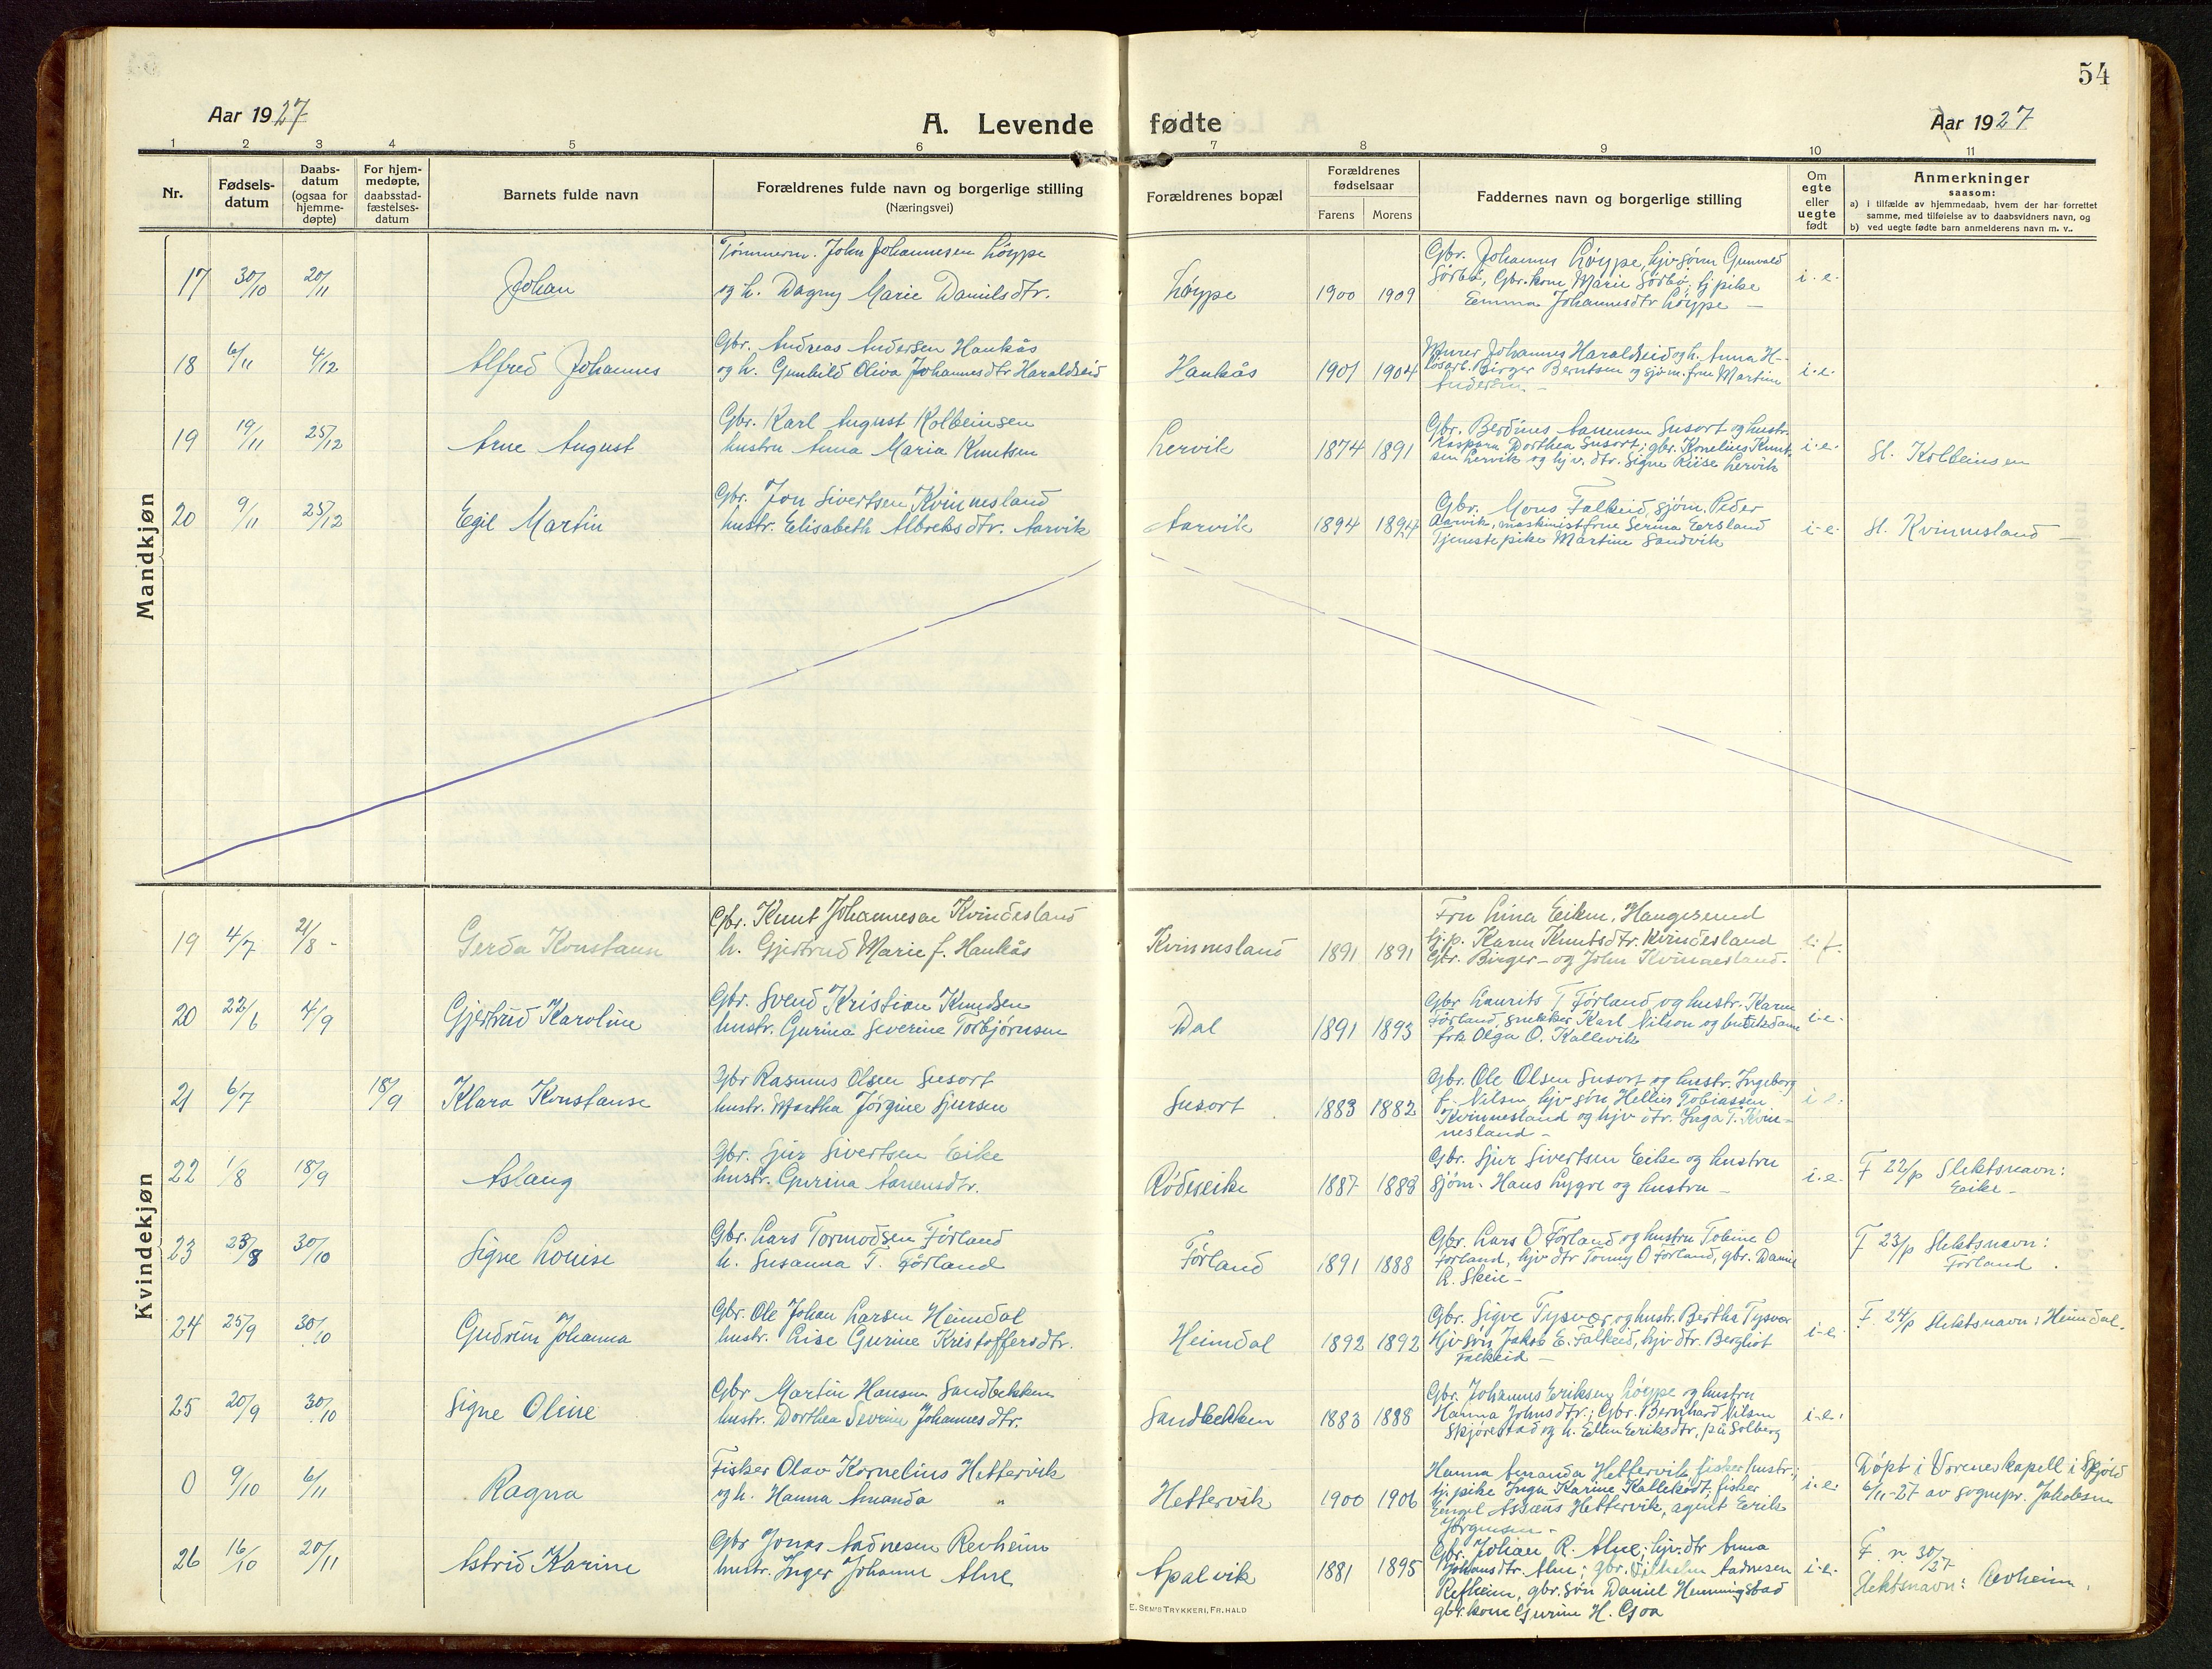 54
Aar 1927
A. Levende fødte
Aar 1927
1 2 3 4 5 6 7 8 9 10 11
Nr.
Fødsels-
datum
Daabs-
datum
(ogsaa for
hjemme-
døpte)
For hjem-
medøpte,
daabsstad-
fæstelses-
datum
Barnets fulde navn
Forældrenes fulde navn og borgerlige stilling
(Næringsvei)
Forældrenes bopæl
Forældrenes
fødselsaar
Farens Morens
Faddernes navn og borgerlige stilling
Om
egte
eller
uegte
født
Anmerkninger
saasom:
a) i tilfælde av hjemmedaab, hvem der har forrettet
samme, med tilføielse av to daabsvidners navn, og
b) ved uegte fødte barn anmelderens navn m. v..
Mandkjøn
17 30/10 20/11 Johan
Tømmerm. John Johannesen Løype
og h. Dagny Marie Danielsdtr.
Løype 1900 1909
Gbr. Johannes Løype, hjv sønn Gunvald
Sørbø, Gbr. kone Marie Sørbø, tj pike
Emma Johannesdtr Løype –
i. e.
18 6/11 4/12 Alfred Johannes
Gbr. Andreas Andersen Haukås
og h. Gunhild Oliva Johannesdtr Haraldseid
Haukås 1901 1904
Murer Johannes Haraldseid og h. Anna H-
løsarb. Birger Berntsen og sjøm. frue Martine
Andersen. –
i. e.
19 19/11 25/12 Arne August
Gbr. Karl August Kolbeinsen
hustru Anna Maria Knutsen
Lervik 1874 1891
Gbr. Berdines Aanensen Susort og hustr.
Kaspara Dorthea Susort; gbr. Kornelius Knut-
sen Lervik og hjv. dtr. Signe Riise Lervik
i. e.
Sl. Kolbeinsen
20 9/11 25/12 Egil Martin
Gbr. Jon Sivertsen Kvinnesland
hustr. Elisabeth Albreksdtr. Aarvik
Aarvik 1894 1894
Gbr. Mons Falkeid, sjøm. Peder
Aarvik, maskinistfrue Serina Eersland
Tjenestepike Martine Sandvik
i-e.
Sl. Kvinnesland –
Kvindekjøn
19 4/7 21/8 - Gerda Konstanse
Gbr. Knut Johannesen Kvindesland
h. Gjertrud Marie f. Haukås
Kvinnesland 1891 1891
Fru Lina Eiken, Haugesund
tj. p. Karen Knutsdtr. Kvindesland
Gbr. Birger - og John Kvinnesland.
20 22/6 4/9 Gjertrud Karoline
Gbr. Svend Kristian Knudsen
hustr. Gurina Severine Torbjørnsen
Dal 1891 1893
Gbr Laurits T Førland og hustr. Karen
Førland, snekker Karl Nilson og butikdame
frk Olga O. Kallevik
i-e-
21 6/7 18/9 Klara Konstanse
Gbr Rasmus Olsen Susort
hustr. Martha Jørgine Sjursen
Susort 1883 1882
Gbr. Ole Olsen Susort og hustr. Ingeborg
f. Nilsen, hjv søn Hellies Tobiassen
Kvinnesland og hjv dtr. Inga T. Kvin-
nesland –
i e.
22 1/8 18/9 Aslaug
Gbr. Sjur Sivertsen Eike
hustr. Gurina Aanensdtr.
Rødeseike 1887 1888
Gbr. Sjur Sivertsen Eike og hustru
sjøm. Hans Lygre og hustru –
i. e.
F 22/p Slektsnavn:
Eike –
23 23/8 30/10 Signe Louise
Gbr. Lars Tormodsen Førland
h. Susanna T. Førland
Førland 1891 1888
Gbr. Lars O Førland og hustru Tobine O
Førland, hjv dtr Tommy O Førland, gbr. Daniel
R. Skeie –
F 23/p Slektsnavn:
Førland.
24 25/9 30/10 Gudrun Johanna
Gbr. Ole Johan Larsen Heimdal
hustr. Lise Gurine Kristoffersdtr.
Heimdal 1892 1892
Gbr. Sigve Tysvær og hustr. Bertha Tysvær
Hjv søn Jakob E. Falkeid, hjv dtr. Bergliot
Falkeid –
i-e.
F. 24/p Slektsnavn: Heimdal.
25 20/9 30/10 Signe Oline
Gbr Martin Hansen Sandbekken
hustr. Dorthea Severine Johannesdtr.
Sandbekken 1883 1888
Gbr. Johannes Eriksen Løype og hustru
Hanna Johnsdtr.; Gbr. Bernhard Nilsen
Skjørestad og h. Ellen Eeriksdtr, på Solberg
i-e.
0 9/10 6/11 Ragna
Fisker Olav Kornelius Hettervik
og h. Hanna Amanda "
Hettervik 1900 1906
Hanna Amanda Hettervik, fiskerhustr.;
tj. pike Inga Karine Kallekødt, fisker
Eengel Assæus Hettervik, agent Eerik
Jørgensen –
i-e.
Døpt i Vornes kapell i Skjold
6/11-27 av sognepr. Jakobsen
26 16/10 20/11 Astrid Karine
Gbr Jonas Aadnesen Revheim
hustr. Inger Johanne Alne
Apalvik 1881 1895
Gbr. Johan R. Alne; hjv. dtr Anna
Johansdtr. Alne; gbr. Vilhelm Aadnesen
Refheim, gbr. søn Daniel Henningstad
gbr. kone Gurine H. Gjoa
i-e.
F. n 30/27
Slektsnavn: Revheim.
E. SEM'S TRYKKERI, FR.HALD